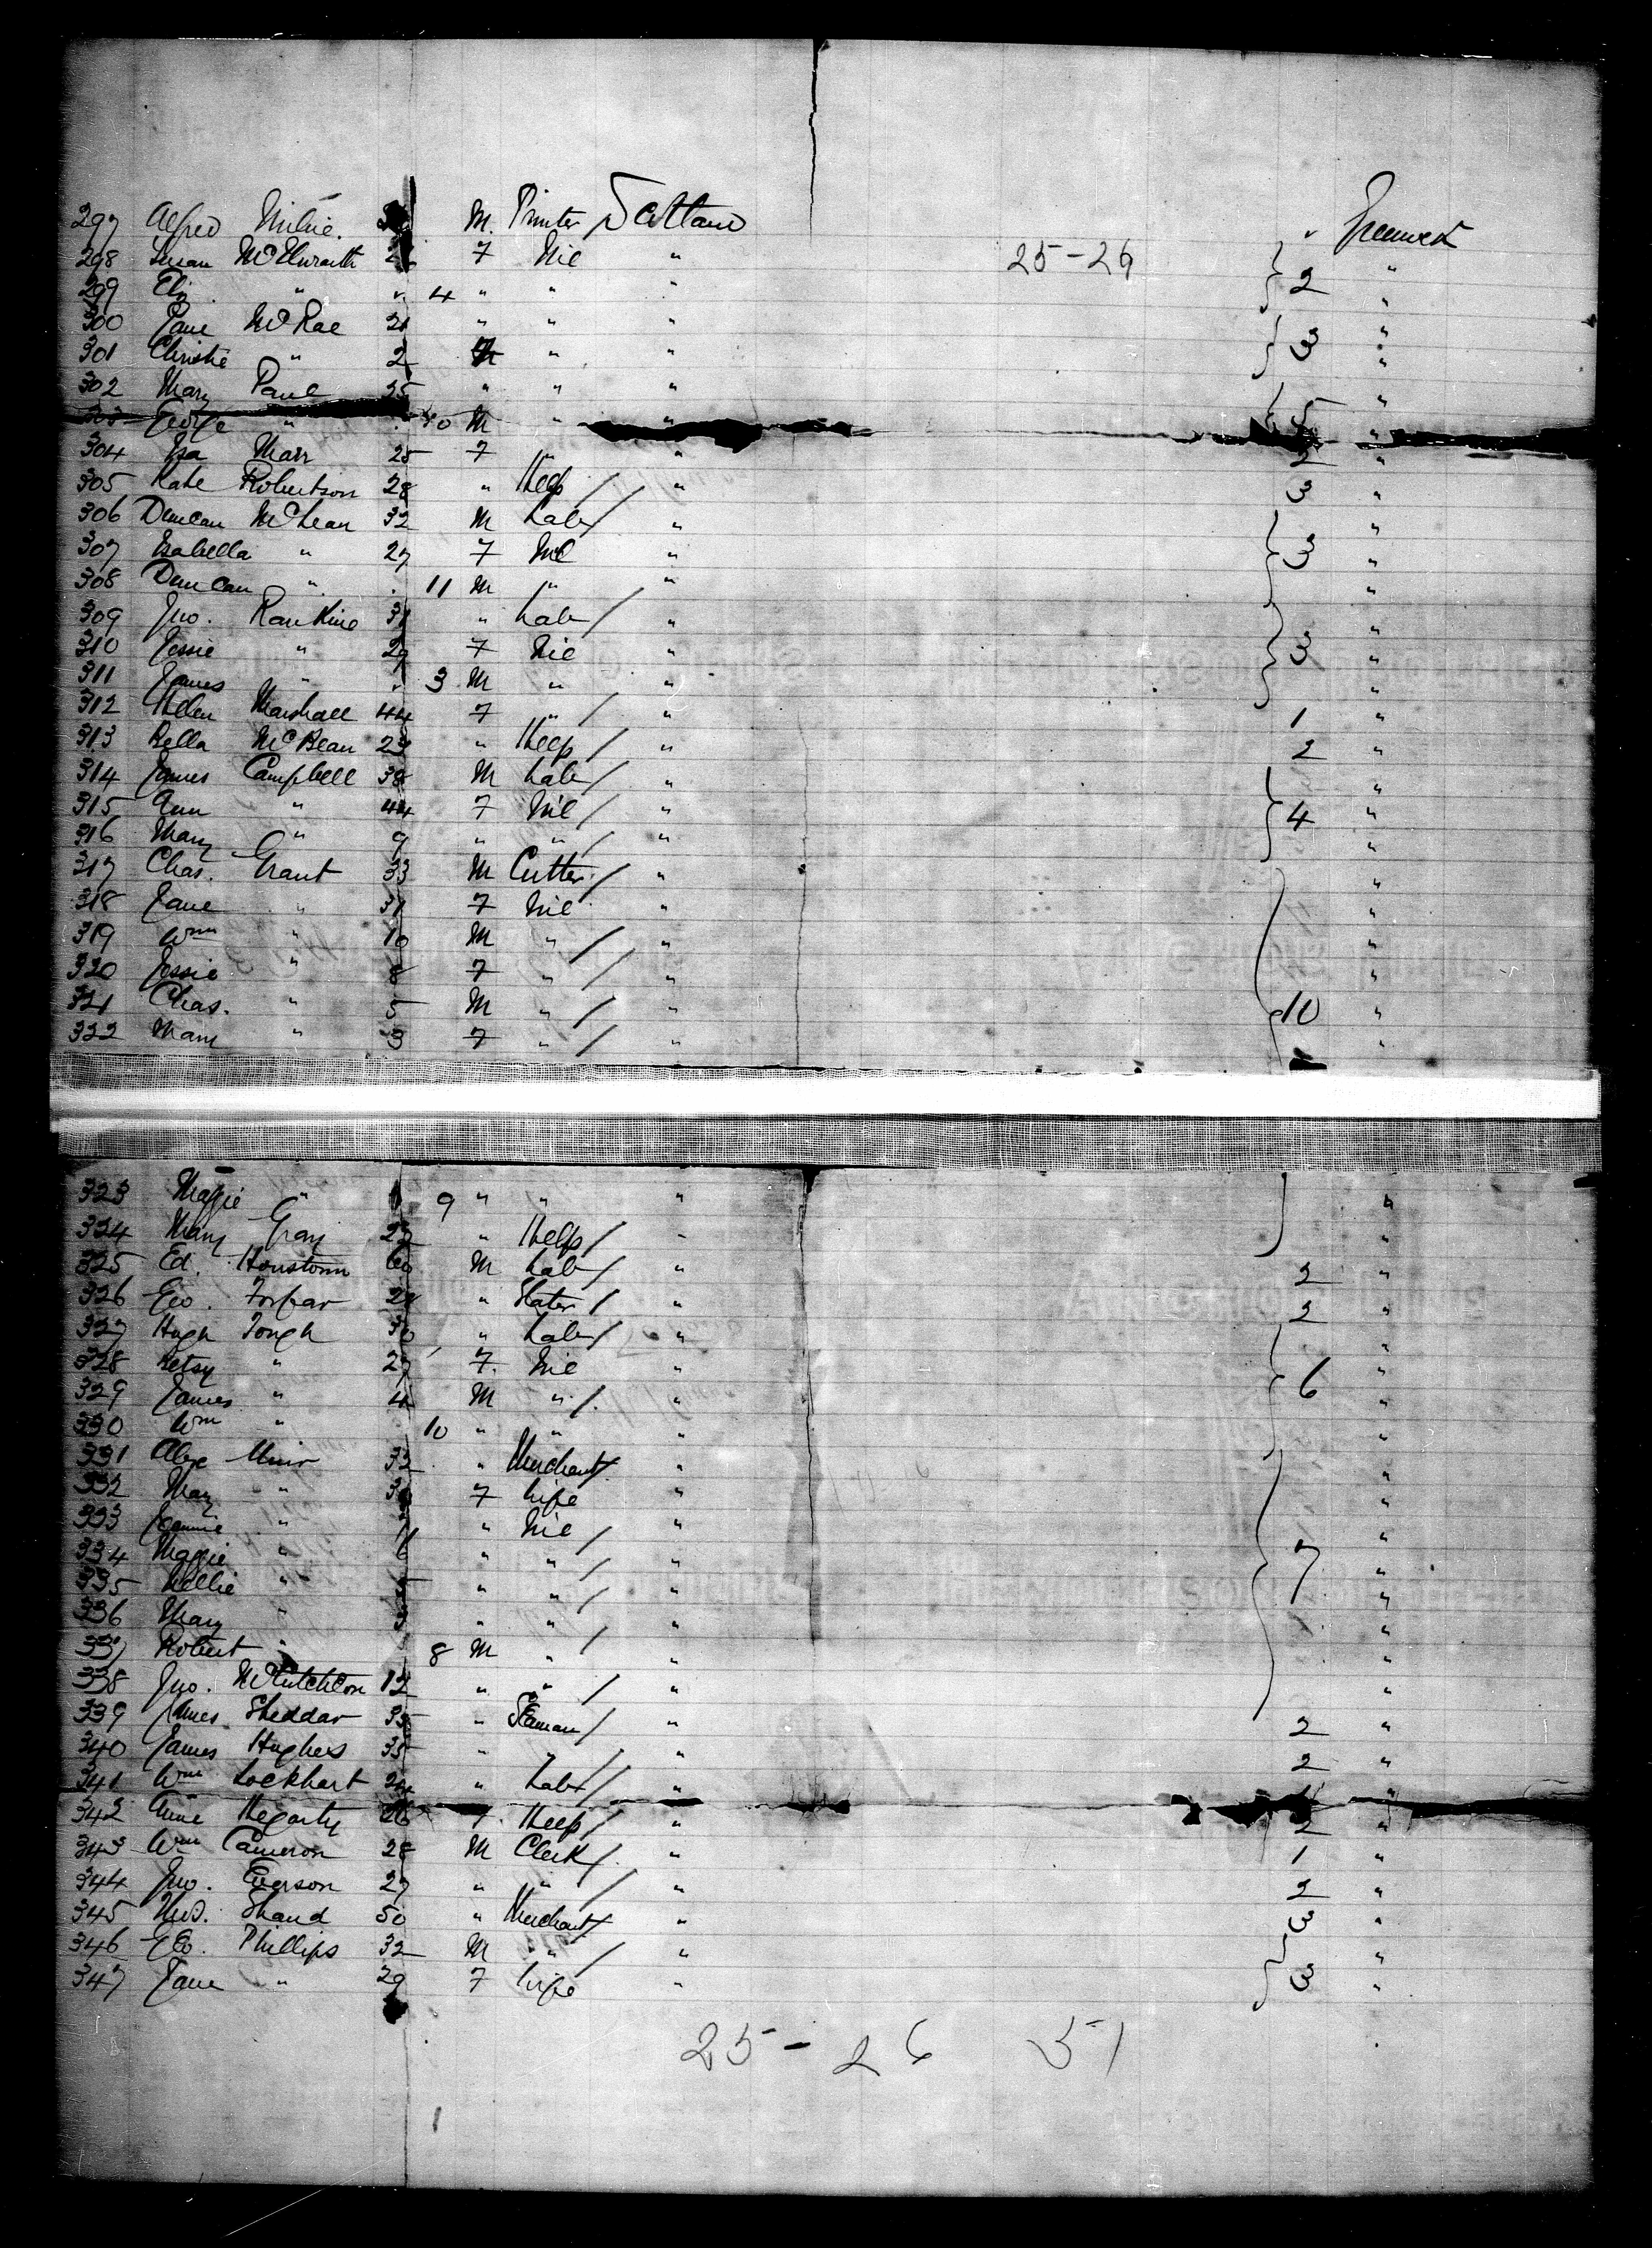 297 Alfred Milne. M. Printer Scotland " Greenock
298 Susan McElwraith 7 Nil " 25-26 2 "
299 Eliz. " " 4 " " " "
300 Jane McRae 21 " " " "
301 Christie " 2 7 " " 3 "
302 Mary Paul 25 " " " "
303 George " . 10 M " " 5 "
304 Isa Marr 25 7 " " 2 "
305 Kate Robertson 28 " Help / " 3 "
306 Duncan McLean 32 M Labr / " "
307 Isabella " 27 7 Nil " 3 "
308 Duncan " . 11 M " " "
309 Jno. Rankine 31 " Labr / " "
310 Jessie " 29 7 Nil " 3 "
311 James " " 3 M " " "
312 Helen Marshall 44 7 " / " 1 "
313 Bella McBean 23 " Help / " 2 "
314 James Campbell 38 M Labr / " "
315 Ann " 44 7 Nil / " 4 "
316 Mary " 9 " " / " "
317 Chas. Grant 33 M Cutter / " "
318 Jane " 31 7 Nil " "
319 Wm " 10 M " / " "
320 Jessie " 8 7 " / " "
321 Chas. " 5 M " / " 10 "
322 Mary " 3 7 " / " "
323 Maggie " 9 " " " "
324 Mary Gray 23 " Help / " "
325 Ed. Houstown 60 M Labr / " 2 "
326 Geo. Forfar 28 " Slater / " 2 "
327 Hugh Tough 30 " Labr / " "
328 Betsy " 27 7 Nil " 6 "
329 James " 4 M " / " "
330 Wm " 10 " " " "
331 Alex Muir 32 " Merchant / " "
332 Mary " 7 Wife " "
333 Jeannie " " Nil / " "
334 Maggie " 6 " " / " "
335 Nellie " 5 " " / " 7 "
336 Mary " 3 " " / " "
337 Robert " 8 M " " "
338 Jno. McCutcheon 12 " " / " "
339 James Sheddar 35 " Seaman / " 2 "
340 James Hughes 35 " " / " 2 "
341 Wm Lockhart 24 " Labr / " 1 "
342 Annie Hegarty 26 7 Help / " 2 "
343 Wm Cameron 28 M Clerk / " 1 "
344 Jno. Everson 27 " " / " 2 "
345 Thos. Shand 50 " Merchant / " 3 "
346 Geo. Phillips 32 M " / " "
347 Jane " 29 7 Wife " 3 "
25-26 51